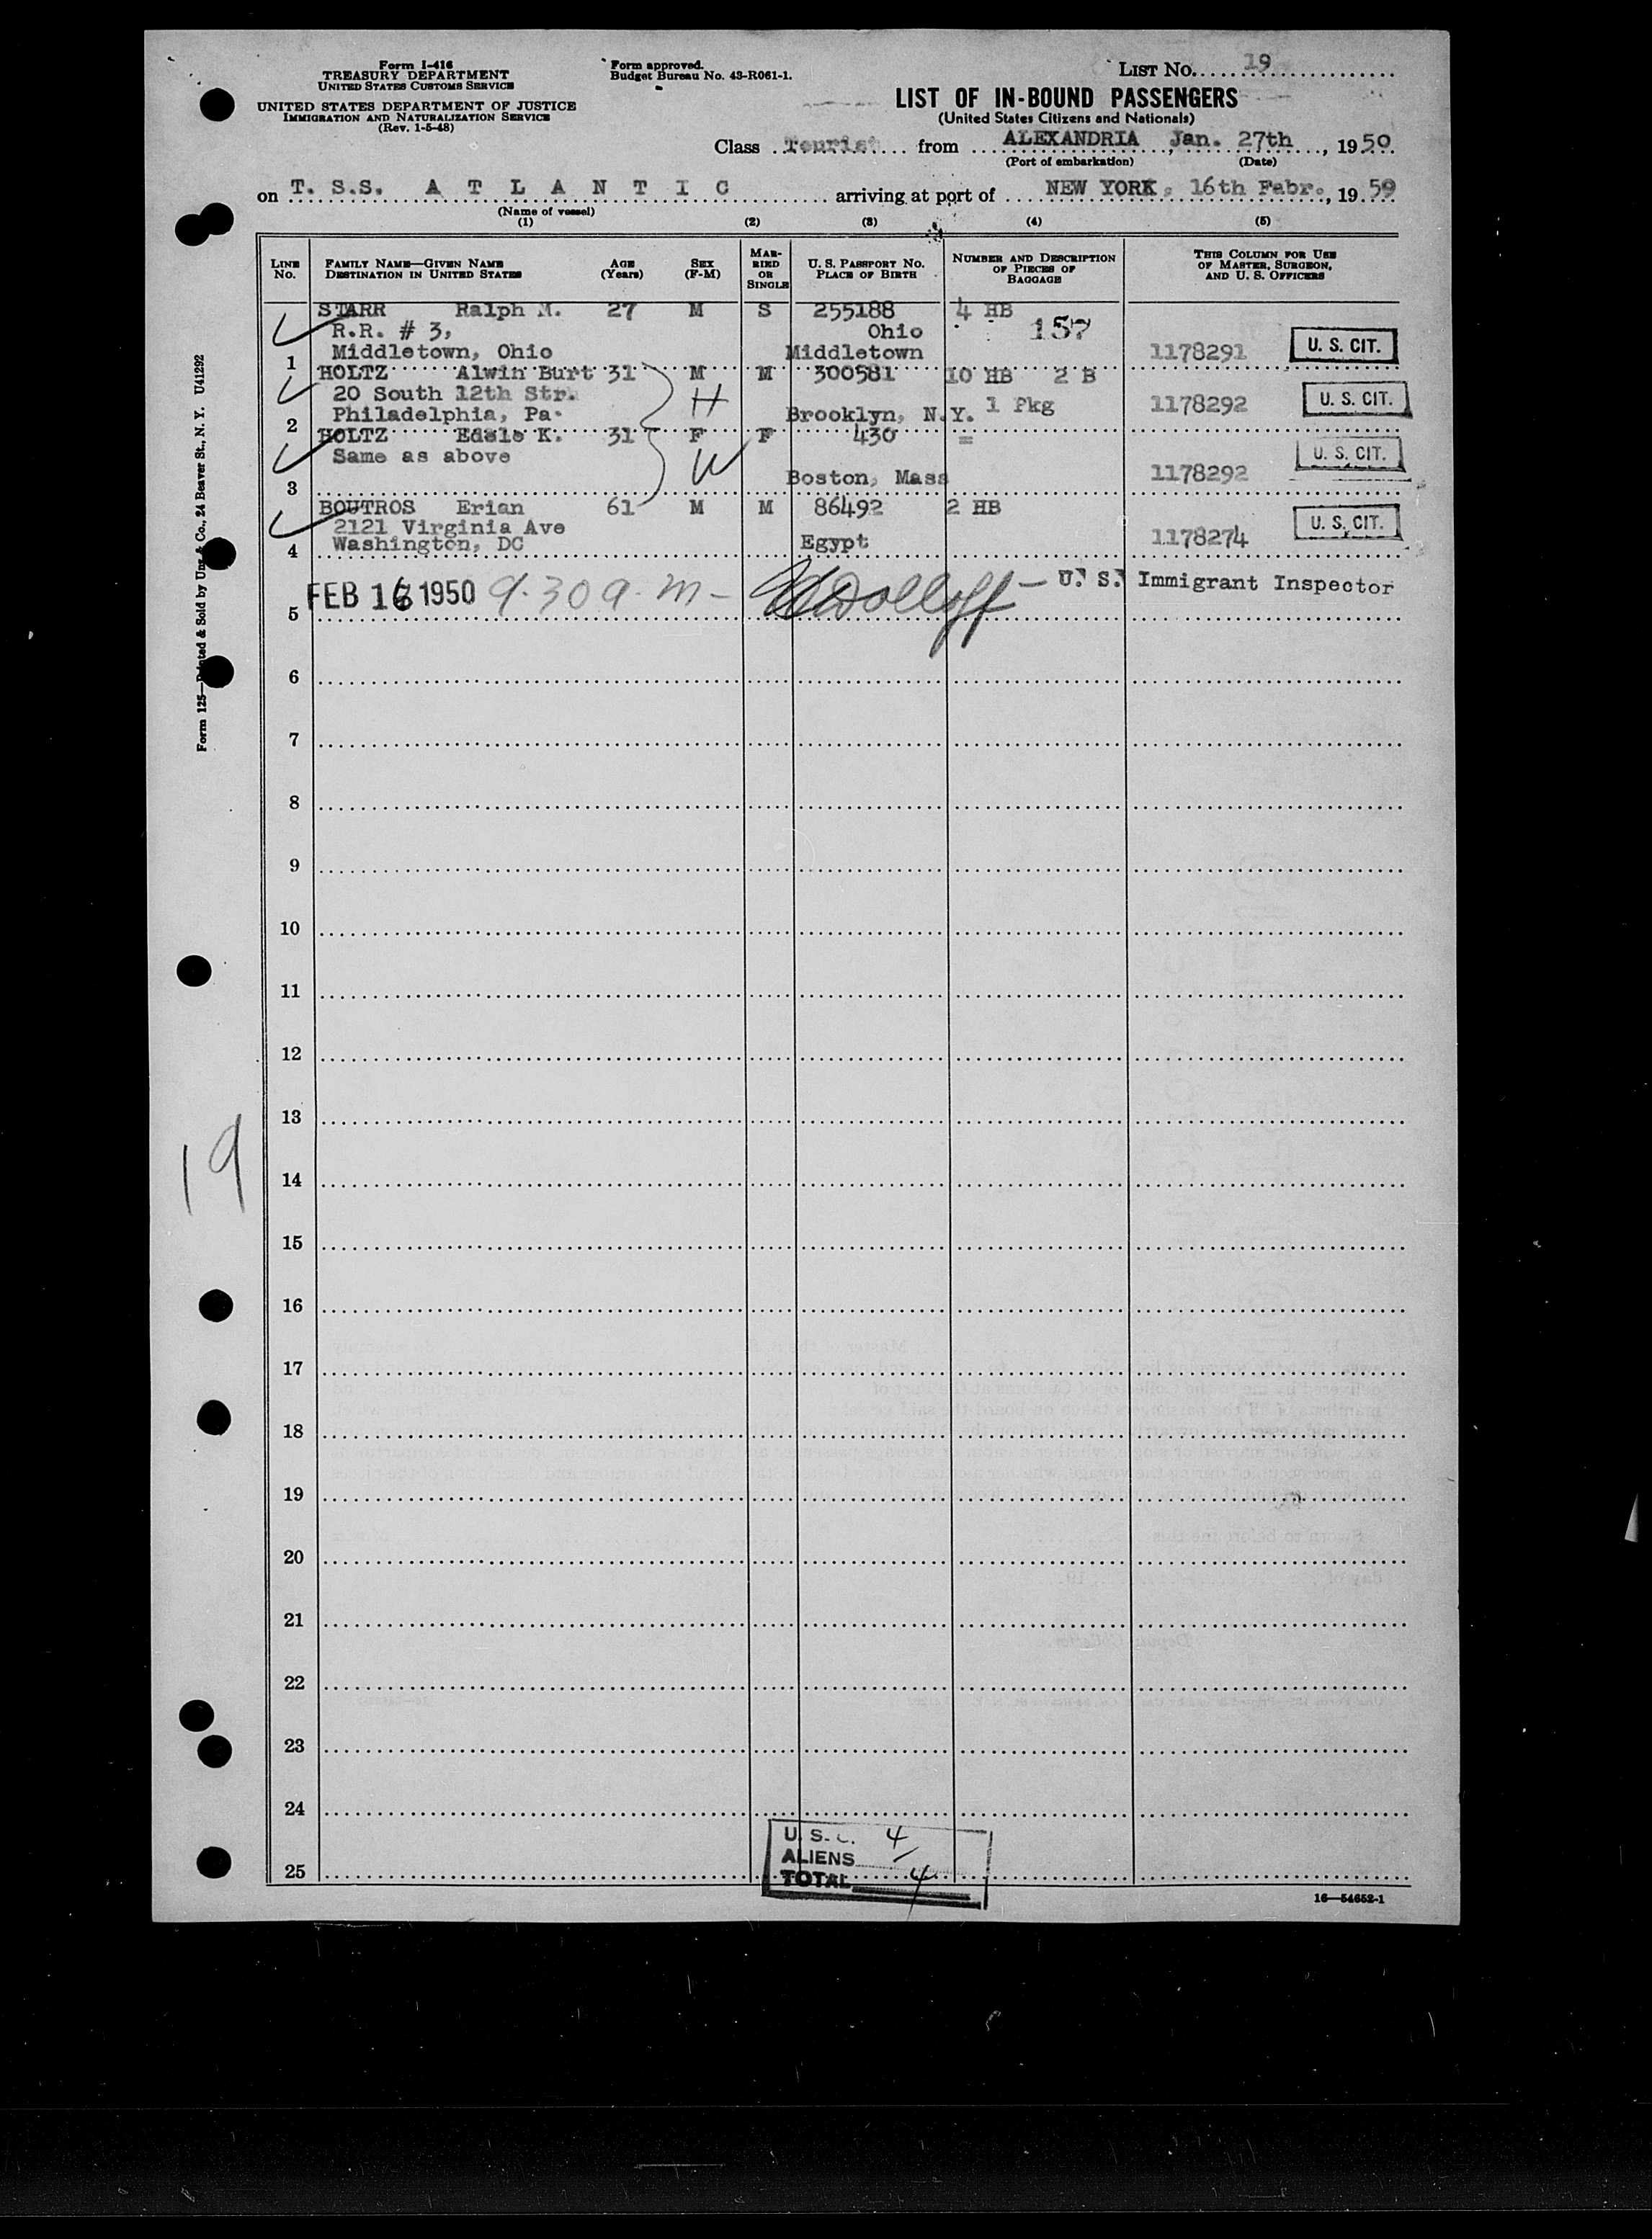 Form I-416
TREASURY DEPARTMENT
UNITED STATES CUSTOMS SERVICE
UNITED STATES DEPARTMENT OF JUSTICE
IMMIGRATION AND NATURALIZATION SERVICE
(Rev. 1-5-48)
Form approved.
Budget Bureau No. 43-R061-1.
LIST No. 19
LIST OF IN-BOUND PASSENGERS
(United States Citizens and Nationals)
Class Tourist from ALEXANDRIA, Jan. 27th, 1950
(Port of embarkation) (Date)
on T. S.S. A T L A N T I C arriving at port of NEW YORK, 16th Febr., 1959
(Name of vessel)
(1) (2) (3) (4) (5)
LINE No. FAMILY NAME—GIVEN NAME DESTINATION IN UNITED STATES AGE (Years) SEX (F-M) MARRIED OR SINGLE U. S. PASSPORT No. PLACE OF BIRTH NUMBER AND DESCRIPTION OF PIECES OF BAGGAGE THIS COLUMN FOR USE OF MASTER, SURGEON, AND U. S. OFFICERS
STARR Ralph M. 27 M S 255188 4 HB
R.R. # 3, Ohio 157
1 Middletown, Ohio Middletown 1178291 U. S. CIT.
HOLTZ Alwin Burt 31 M M 300581 10 HB 2 B
20 South 12th Str. H 1178292 U. S. CIT.
2 Philadelphia, Pa. Brooklyn, N.Y. 1 Pkg
HOLTZ K. 31 F F 430 =
Same as above W U. S. CIT.
3 Boston, Mass 1178292
BOUTROS Erian 61 M M 86492 2 HB
2121 Virginia Ave U. S. CIT.
4 Washington, DC Egypt 1178274
FEB 16 1950 9.30 a.m - Dolloff - U. S. Immigrant Inspector
5
6
7
8
9
10
11
12
13
14
15
16
17
18
19
20
21
22
23
24
25
U. S. C. 4
ALIENS /
TOTAL 4
16—54652-1
Form 125—Printed & Sold by Unz & Co., 24 Beaver St., N. Y. U41292
19